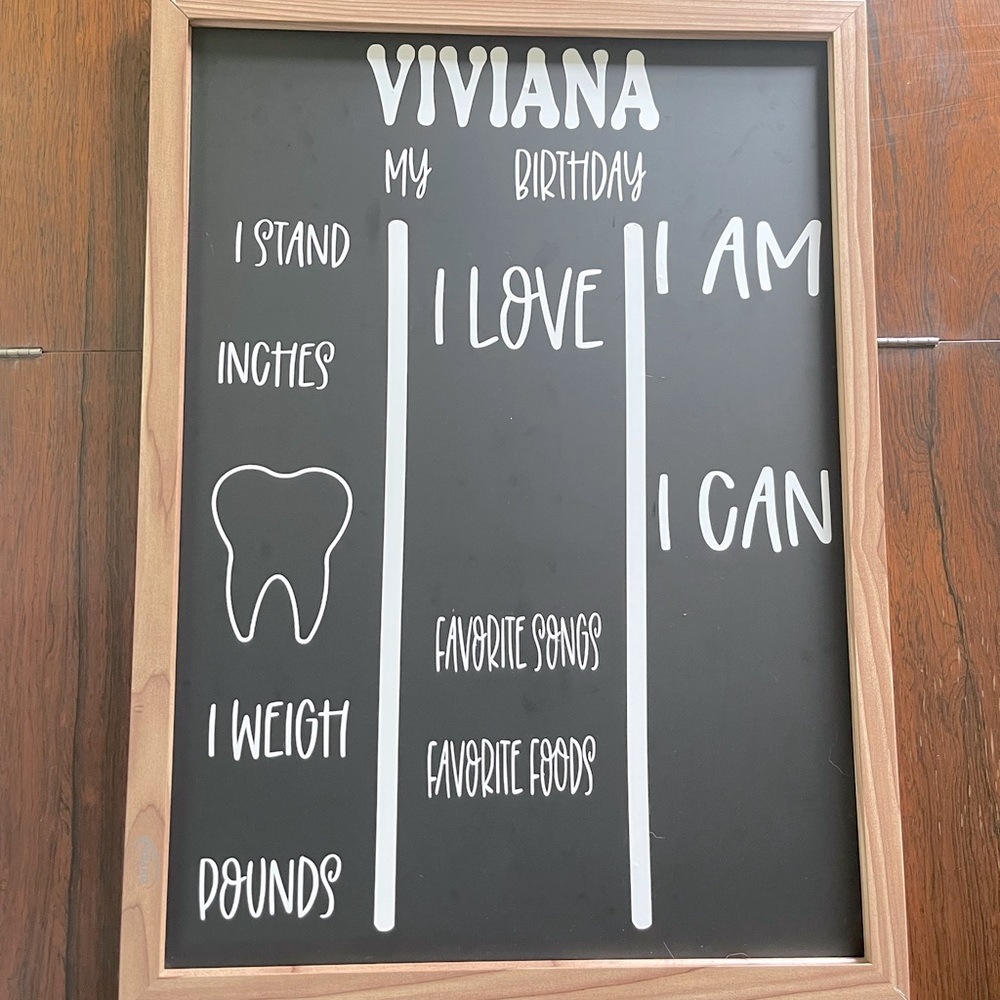 VIVIANA
MY BIRTHDAY
I STAND
INCHES
I WEIGH
POUNDS
I LOVE
FAVORITE SONGS
FAVORITE FOODS
I AM
I CAN